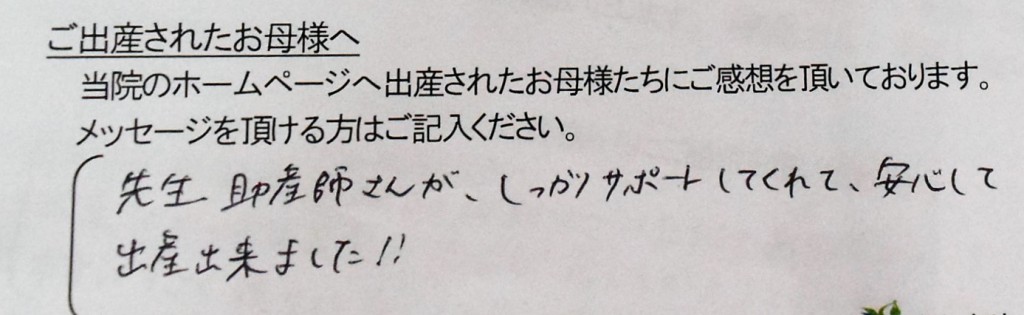 ご出産されたお母様へ
当院のホームページへ出産されたお母様たちにご感想を頂いております。
メッセージを頂ける方はご記入ください。
先生 助産師さんが、しっかりサポートしてくれて、安心して
出産出来ました!!